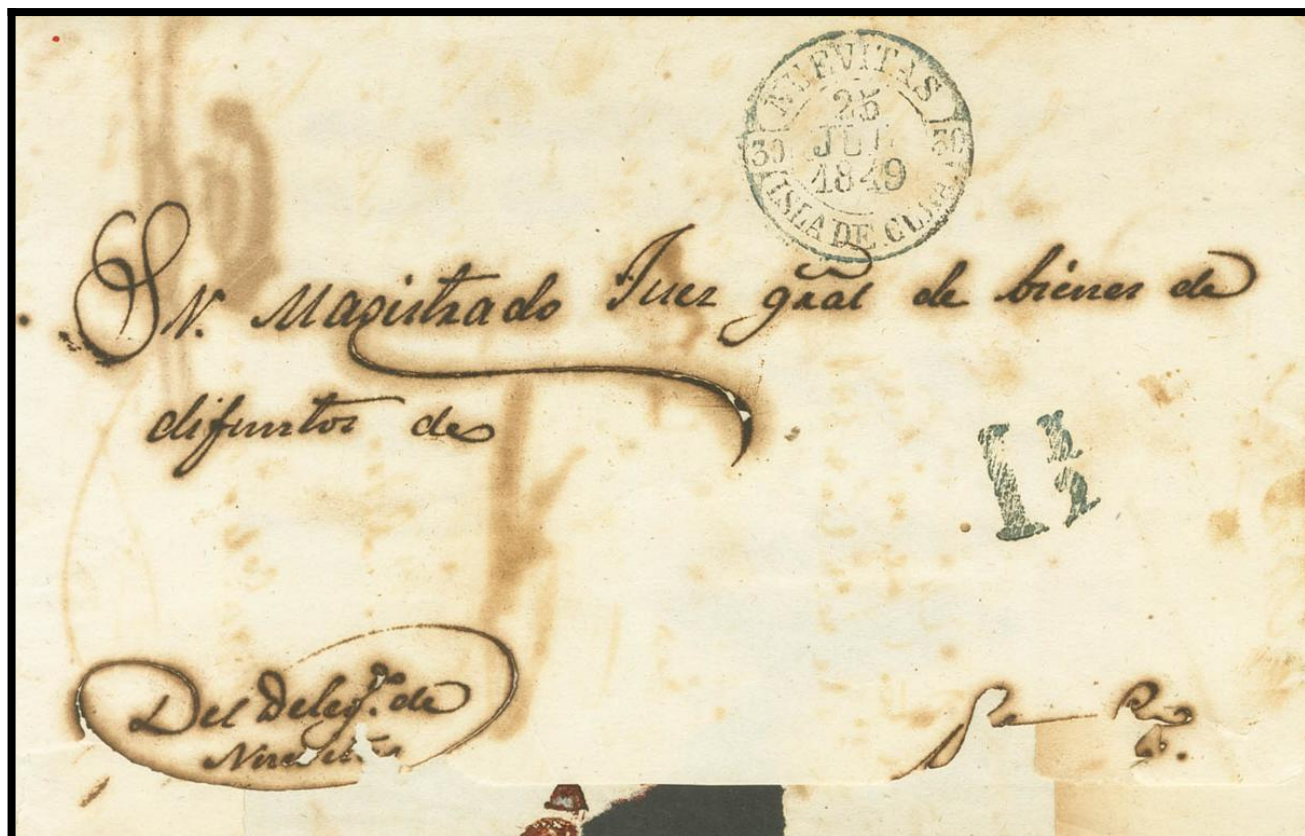 NUEVITAS
25
JUL
1849
30 30
ISLA DE CUBA
Sr. Magistrado Juez gral de bienes de
difuntos de
Del Deleg.do de
Nuevitas